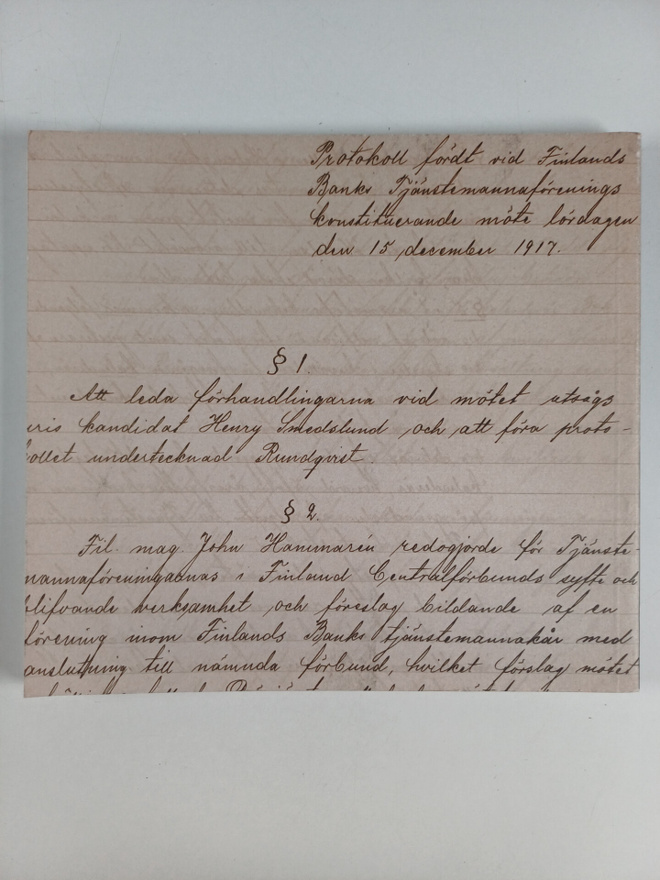 Protokoll fördt vid Finlands
Banks Tjänstemannaförenings
konstituerande möte lördagen
den 15 december 1917.
§ 1.
Att leda förhandlingarna vid mötet utsågs
uris kandidat Henry Smedslund och att föra proto-
kollet undertecknad Rundqvist.
§ 2.
Fil. mag. John Hammarén redogjorde för Tjänste-
mannaföreningarnas i Finland Centralförbunds syfte och
blifvande verksamhet och föreslog bildande af en
förening inom Finlands Banks tjänstemannakår med
anslutning till nämnda förbund, hvilket förslag mötet